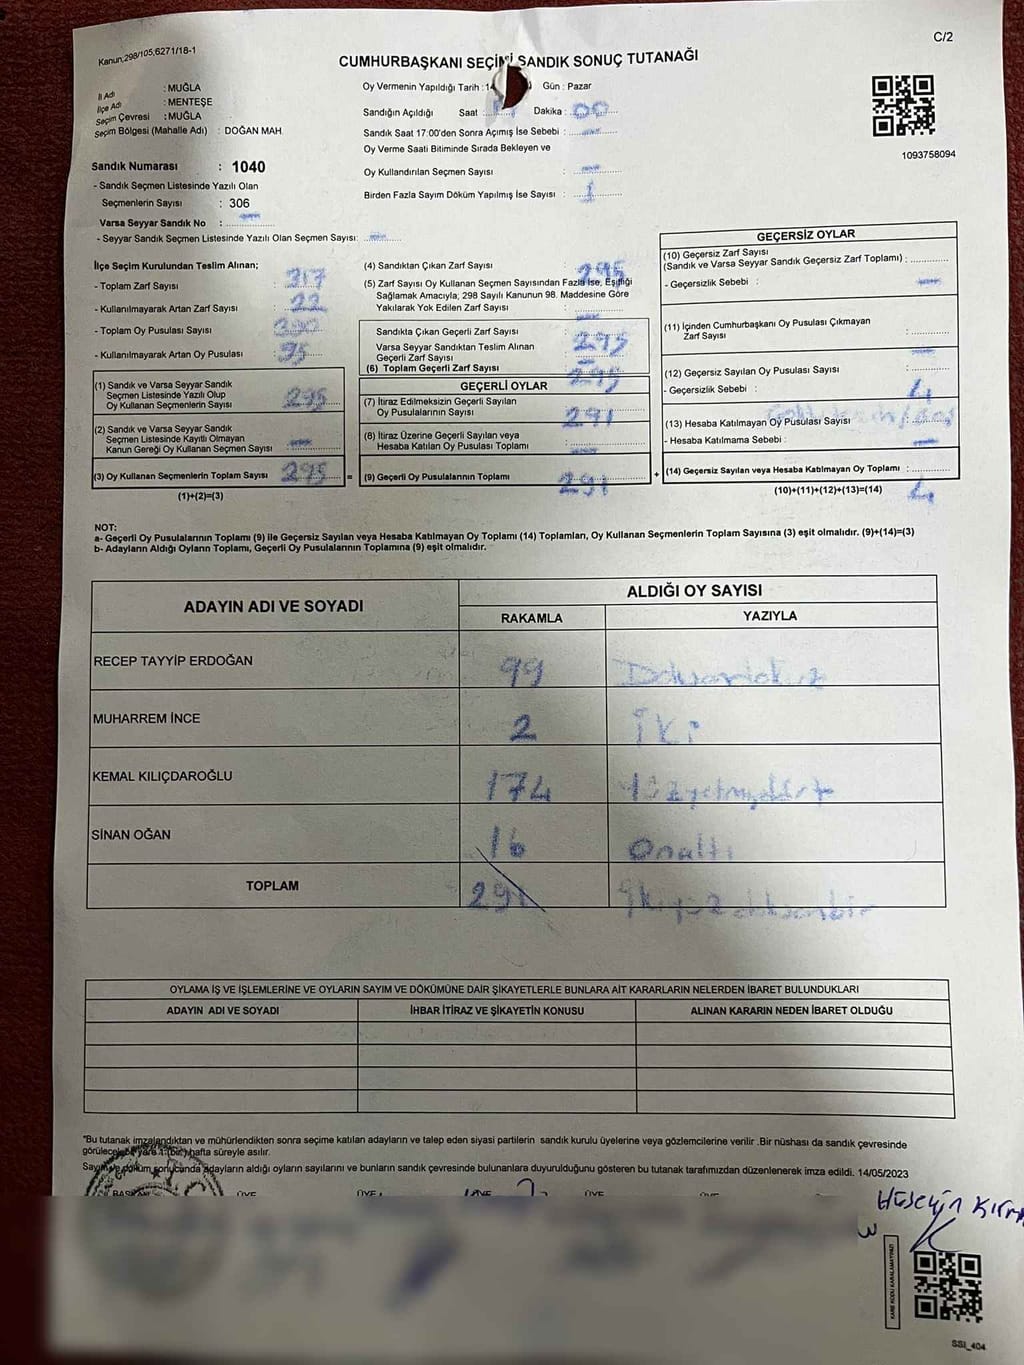 Kanun,298/105,6271/18-1
C/2
CUMHURBAŞKANI SEÇİMİ SANDIK SONUÇ TUTANAĞI
İl Adı : MUĞLA
İlçe Adı : MENTEŞE
Seçim Çevresi : MUĞLA
Seçim Bölgesi (Mahalle Adı) : DOĞAN MAH.
Sandık Numarası : 1040
- Sandık Seçmen Listesinde Yazılı Olan
Seçmenlerin Sayısı : 306
Varsa Seyyar Sandık No :
- Seyyar Sandık Seçmen Listesinde Yazılı Olan Seçmen Sayısı:
Oy Vermenin Yapıldığı Tarih :14 Gün : Pazar
Sandığın Açıldığı Saat : Dakika : 00
Sandık Saat 17:00'den Sonra Açımış İse Sebebi :
Oy Verme Saati Bitiminde Sırada Bekleyen ve
Oy Kullandırılan Seçmen Sayısı :
Birden Fazla Sayım Döküm Yapılmış İse Sayısı : 1
1093758094
İlçe Seçim Kurulundan Teslim Alınan;
- Toplam Zarf Sayısı : 317
- Kullanılmayarak Artan Zarf Sayısı : 22
- Toplam Oy Pusulası Sayısı :
- Kullanılmayarak Artan Oy Pusulası : 95
(1) Sandık ve Varsa Seyyar Sandık
Seçmen Listesinde Yazılı Olup
Oy Kullanan Seçmenlerin Sayısı : 295
(2) Sandık ve Varsa Seyyar Sandık
Seçmen Listesinde Kayıtlı Olmayan
Kanun Gereği Oy Kullanan Seçmen Sayısı :
(3) Oy Kullanan Seçmenlerin Toplam Sayısı : 295
(1)+(2)=(3)
(4) Sandıktan Çıkan Zarf Sayısı : 295
(5) Zarf Sayısı Oy Kullanan Seçmen Sayısından Fazla İse, Eşitliği
Sağlamak Amacıyla; 298 Sayılı Kanunun 98. Maddesine Göre
Yakılarak Yok Edilen Zarf Sayısı :
Sandıkta Çıkan Geçerli Zarf Sayısı : 295
Varsa Seyyar Sandıktan Teslim Alınan
Geçerli Zarf Sayısı :
(6) Toplam Geçerli Zarf Sayısı : 295
GEÇERLİ OYLAR
(7) İtiraz Edilmeksizin Geçerli Sayılan
Oy Pusulalarının Sayısı : 291
(8) İtiraz Üzerine Geçerli Sayılan veya
Hesaba Katılan Oy Pusulası Toplamı :
= (9) Geçerli Oy Pusulalarının Toplamı : 291 +
GEÇERSİZ OYLAR
(10) Geçersiz Zarf Sayısı
(Sandık ve Varsa Seyyar Sandık Geçersiz Zarf Toplamı) :
- Geçersizlik Sebebi :
(11) İçinden Cumhurbaşkanı Oy Pusulası Çıkmayan
Zarf Sayısı :
(12) Geçersiz Sayılan Oy Pusulası Sayısı :
- Geçersizlik Sebebi : 4
(13) Hesaba Katılmayan Oy Pusulası Sayısı :
- Hesaba Katılmama Sebebi :
(14) Geçersiz Sayılan veya Hesaba Katılmayan Oy Toplamı : 4
(10)+(11)+(12)+(13)=(14)
NOT:
a- Geçerli Oy Pusulalarının Toplamı (9) ile Geçersiz Sayılan veya Hesaba Katılmayan Oy Toplamı (14) Toplamları, Oy Kullanan Seçmenlerin Toplam Sayısına (3) eşit olmalıdır. (9)+(14)=(3)
b- Adayların Aldığı Oyların Toplamı, Geçerli Oy Pusulalarının Toplamına (9) eşit olmalıdır.
ADAYIN ADI VE SOYADI
ALDIĞI OY SAYISI
RAKAMLA YAZIYLA
RECEP TAYYİP ERDOĞAN 99 Doksandokuz
MUHARREM İNCE 2 İki
KEMAL KILIÇDAROĞLU 174 Yüzyetmişdört
SİNAN OĞAN 16 Onaltı
TOPLAM 291 İkiyüz doksanbir
OYLAMA İŞ VE İŞLEMLERİNE VE OYLARIN SAYIM VE DÖKÜMÜNE DAİR ŞİKAYETLERLE BUNLARA AİT KARARLARIN NELERDEN İBARET BULUNDUKLARI
ADAYIN ADI VE SOYADI İHBAR İTİRAZ VE ŞİKAYETİN KONUSU ALINAN KARARIN NEDEN İBARET OLDUĞU
*Bu tutanak imzalandıktan ve mühürlendikten sonra seçime katılan adayların ve talep eden siyasi partilerin sandık kurulu üyelerine veya gözlemcilerine verilir .Bir nüshası da sandık çevresinde
görülecek bir yere 1 (bir) hafta süreyle asılır.
Sayım ve döküm sonucunda adayların aldığı oyların sayılarını ve bunların sandık çevresinde bulunanlara duyurulduğunu gösteren bu tutanak tarafımızdan düzenlenerek imza edildi. 14/05/2023
BAŞKAN ÜYE ÜYE ÜYE ÜYE ÜYE
Hüseyin
KARE KODU KARALAMAYINIZ!
SSI_404